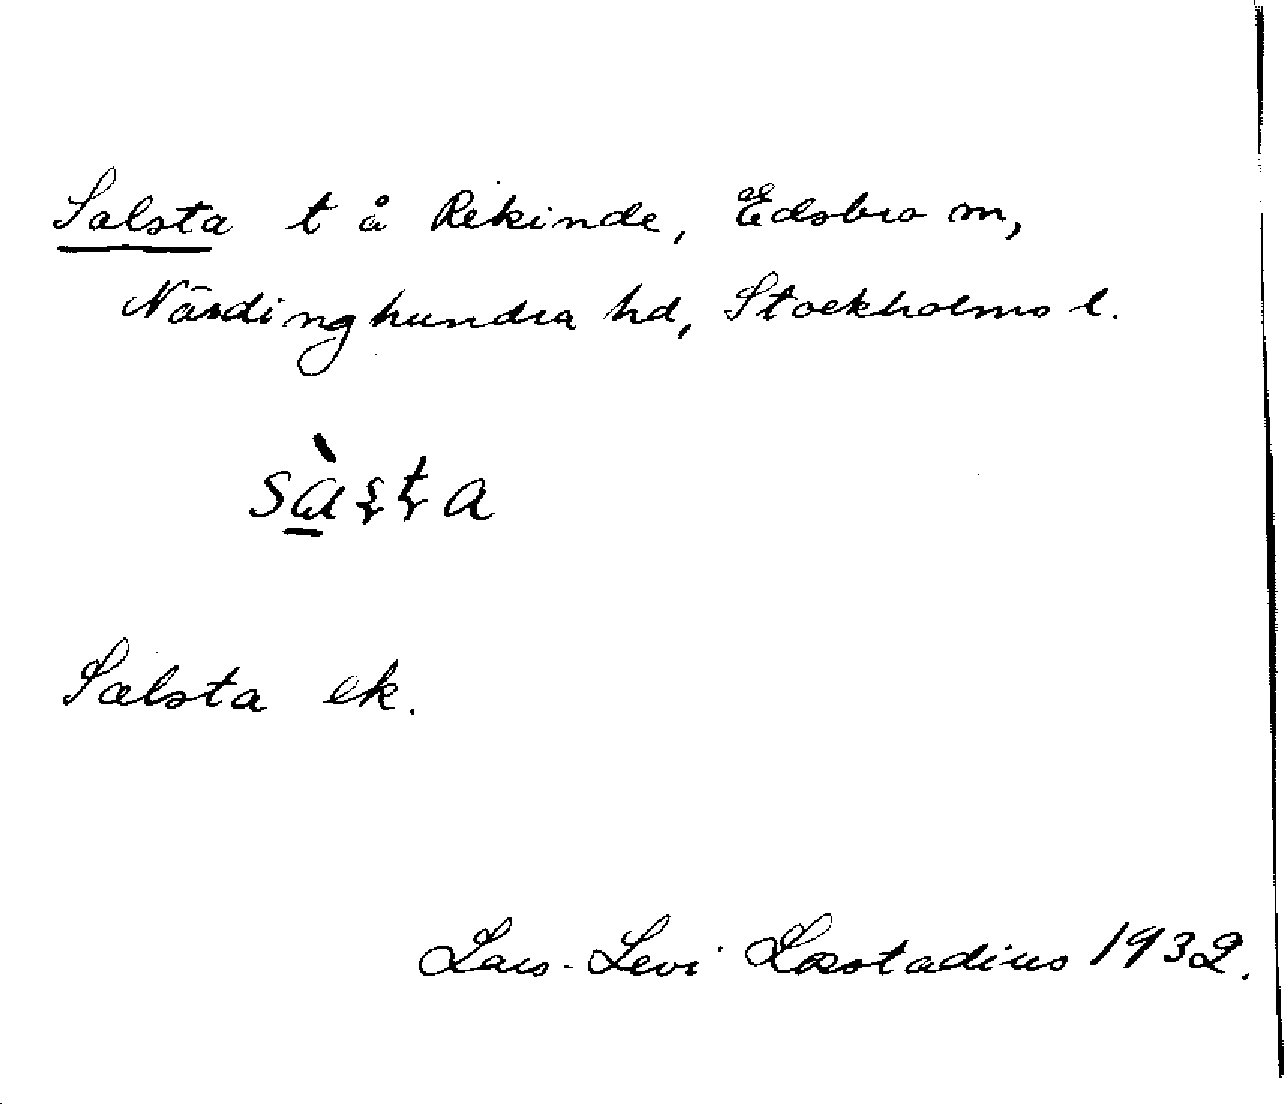 Salsta t å Rikinde, Edsbro sn,
Närdinghundra hd, Stockholms l.
sàʂʈa
Salsta ek.
Lars-Levi Læstadius 1932.